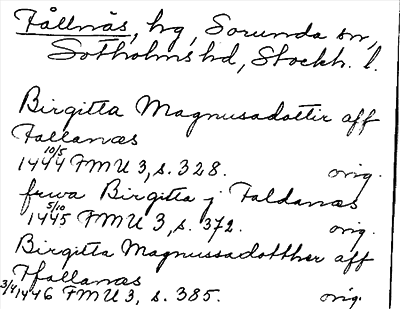 Fållnäs, hg, Sorunda sn,
Sotholms hd, Stockh. l.
Birgitta Magnusadottir aff
Fallanæs
10/5 1444 FMU 3, s. 328. orig.
frwa Birgitta j Faldanæs
5/10 1445 FMU 3, s. 372. orig.
Birgitta Magnussadotther aff
Ffallanæs
3/4 1446 FMU 3, s. 385. orig.